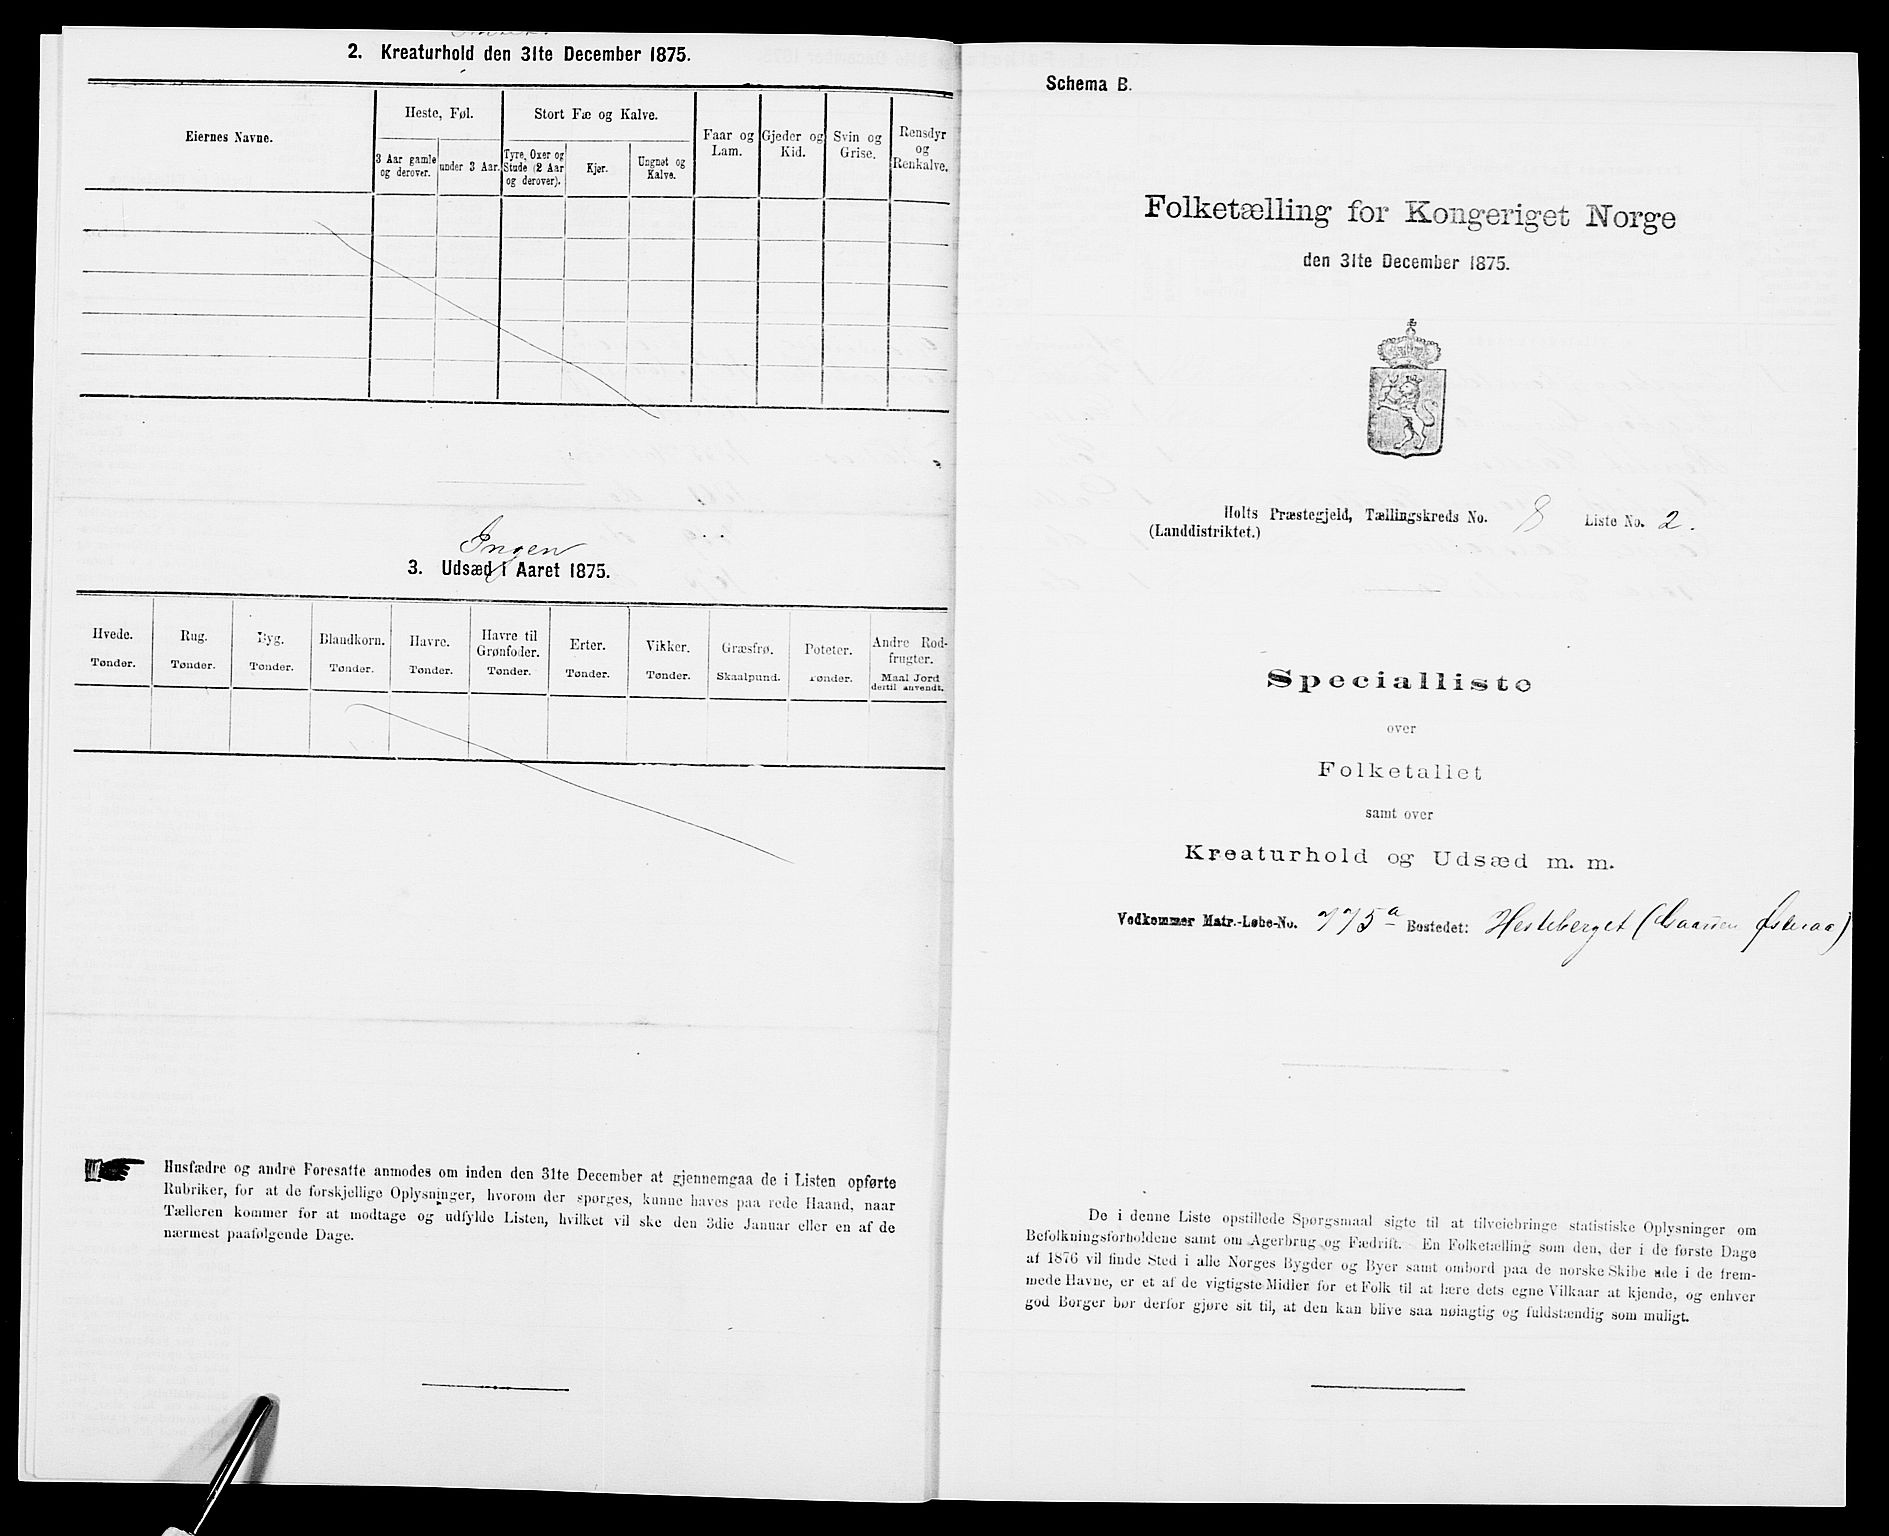 2. Kreaturhold den 31te December 1875.
Eiernes Navne.
Heste, Føl.
3 Aar gamle og derover.
under 3 Aar.
Stort Fæ og Kalve.
Tyre, Oxer og Stude (2 Aar og derover).
Kjør.
Ungnøt og Kalve.
Faar og Lam.
Gjeder og Kid.
Svin og Grise.
Rensdyr og Renkalve.
Ingen
3. Udsæd i Aaret 1875.
Hvede. Tønder.
Rug. Tønder.
Byg. Tønder.
Blandkorn. Tønder.
Havre. Tønder.
Havre til Grønfoder. Tønder.
Erter. Tønder.
Vikker. Tønder.
Græsfrø. Skaalpund.
Poteter. Tønder.
Andre Rodfrugter. Maal Jord dertil anvendt.
Husfædre og andre Foresatte anmodes om inden den 31te December at gjennemgaa de i Listen opførte
Rubriker, for at de forskjellige Oplysninger, hvorom der spørges, kunne haves paa rede Haand, naar
Tælleren kommer for at modtage og udfylde Listen, hvilket vil ske den 3die Januar eller en af de
nærmest paafølgende Dage.
Schema B.
Folketælling for Kongeriget Norge
den 31te December 1875.
Holts Præstegjeld, Tællingskreds No. 8 Liste No. 2.
(Landdistriktet.)
Specialliste
over
Folketallet
samt over
Kreaturhold og Udsæd m. m.
Vedkommer Matr.-Løbe-No. 775a Bostedet: Hesteberget (Gaarden Østeraa)
De i denne Liste opstillede Spørgsmaal sigte til at tilveiebringe statistiske Oplysninger om
Befolkningsforholdene samt om Agerbrug og Fædrift. En Folketælling som den, der i de første Dage
af 1876 vil finde Sted i alle Norges Bygder og Byer samt ombord paa de norske Skibe ude i de frem-
mede Havne, er et af de vigtigste Midler for et Folk til at lære dets egne Vilkaar at kjende, og enhver
god Borger bør derfor gjøre sit til, at den kan blive saa nøiagtig og fuldstændig som muligt.